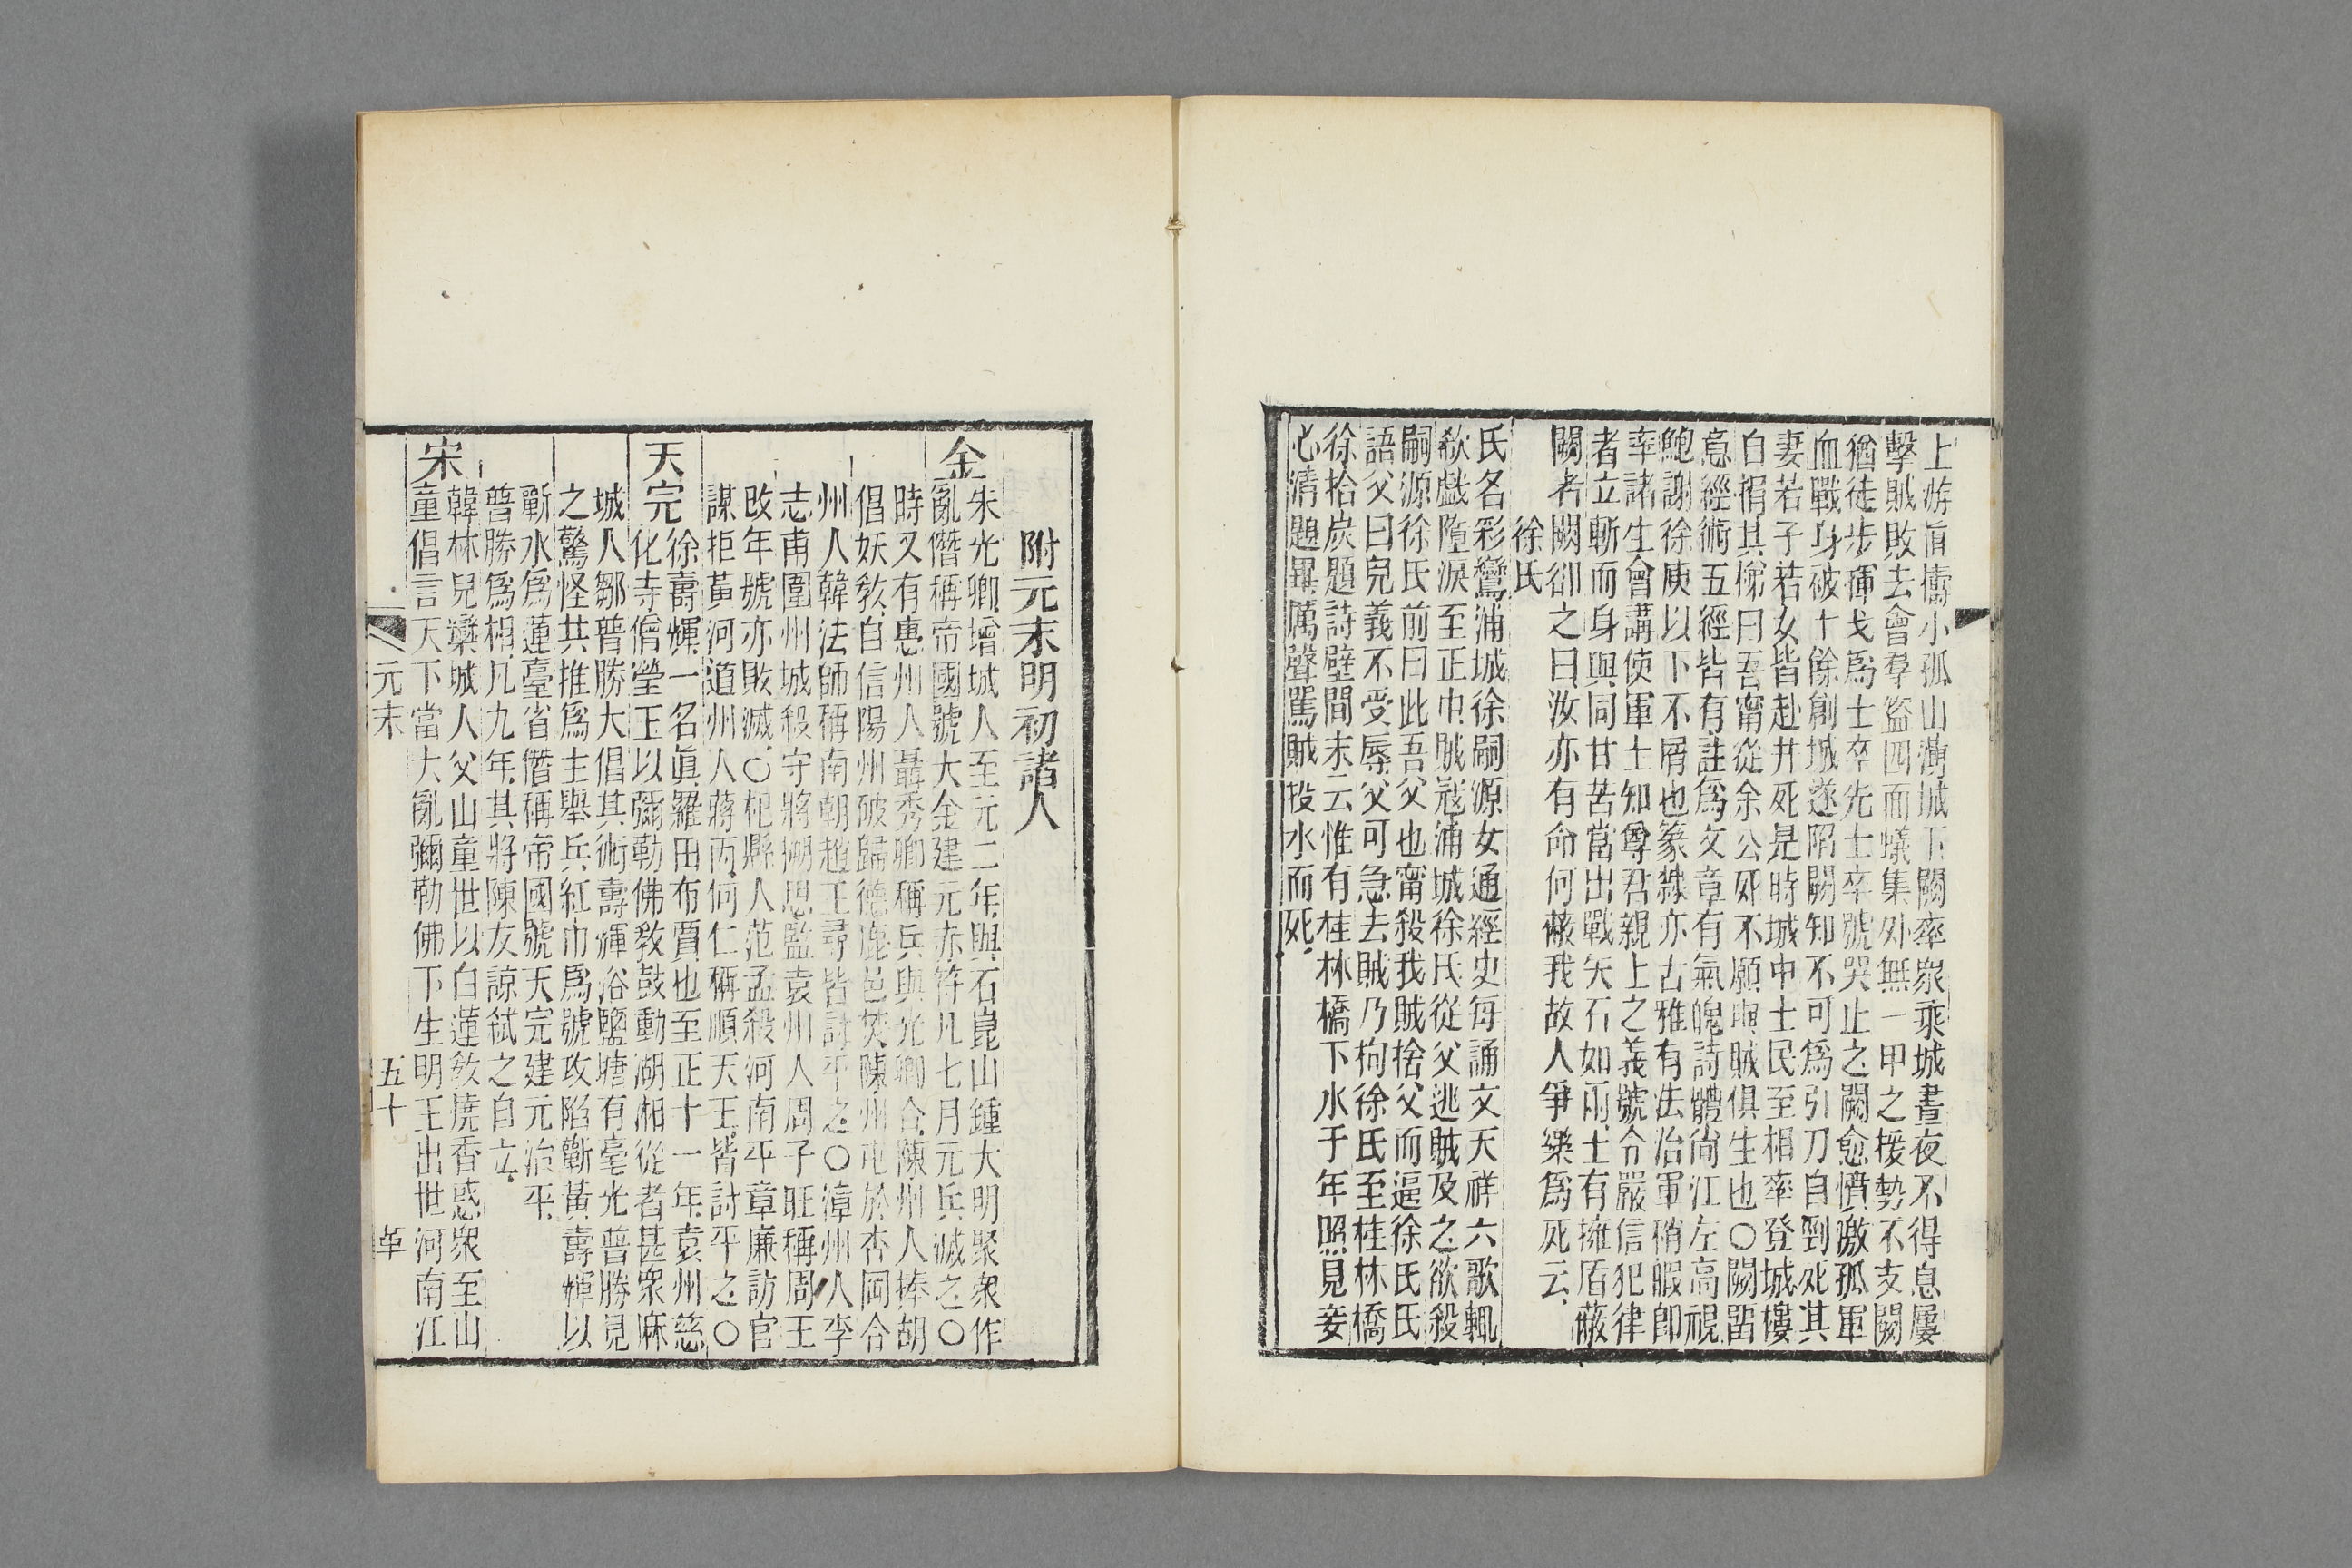 上游眞檮小孤山薄城下闕率衆乘城晝夜不得息屢
擊賊敗去會羣盜四面蟻集外無一甲之援勢不支闕
猶徒步揮戈爲士卒先士卒號哭止之闕愈憤激孤軍
血戰身被十餘創城遂陷闕知不可爲引刀自剄死其
妻若子若女皆赴井死是時城中士民至相率登城樓
自捐其梯曰吾甯從余公死不願與賊俱生也○闕畱
意經術五經皆有註爲文章有氣魄詩體尙江左高視
鮑謝徐庾以下不屑也篆隸亦古雅有法治軍稍暇卽
率諸生會講使軍士知尊君親上之義號令嚴信犯律
者立斬而身與同甘苦當出戰矢石如雨士有擁盾蔽
闕者闕卻之曰汝亦有命何蔽我故人爭樂爲死云
徐氏
氏名彩鸞浦城徐嗣源女通經史每誦文天祥六歌輒
欷戲墮淚至正中賊寇浦城徐氏從父逃賊及之欲殺
嗣源徐氏前曰此吾父也甯殺我賊捨父而逼徐氏氏
語父曰兒義不受辱父可急去賊乃拘徐氏至桂林橋
徐拾炭題詩壁間末云惟有桂林橋下水千年照見妾
心淸題畢厲聲罵賊投水而死
附元末明初諸人
金
朱光卿增城人至元二年與石崑山鍾大明聚衆作
亂僭稱帝國號大金建元赤符凡七月元兵滅之○
時又有惠州人聶秀卿稱兵與光卿合陳州人捧胡
倡妖敎自信陽州破歸德鹿邑焚陳州屯於杏岡合
州人韓法師稱南朝趙王尋皆討平之○漳州人李
志甫圍州城殺守將搠思監袁州人周子旺稱周王
改年號亦敗滅○杞縣人范孟殺河南平章廉訪官
謀拒黃河道州人蔣丙何仁稱順天王皆討平之○
天完
徐壽輝一名眞羅田布賈也至正十一年袁州慈
化寺僧瑩玉以彌勒佛敎鼓動湖湘從者甚衆麻
城人鄒普勝大倡其術壽輝浴鹽塘有毫光普勝見
之驚怪共推爲主舉兵紅巾爲號攻陷蘄黃壽輝以
蘄水爲蓮臺省僭稱帝國號天完建元治平
普勝爲相凡九年其將陳友諒弑之自立
宋
韓林兒欒城人父山童世以白蓮敎燒香惑衆至山
童倡言天下當大亂彌勒佛下生明王出世河南江
元末
五十